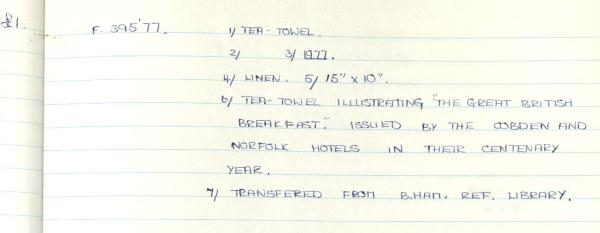 £1. F. 395'77. 1/ TEA-TOWEL.
2/ 3/ 1977.
4/ LINEN. 5/ 15" x 10".
6/ TEA-TOWEL ILLUSTRATING "THE GREAT BRITISH
BREAKFAST". ISSUED BY THE COBDEN AND
NORFOLK HOTELS IN THEIR CENTENARY
YEAR.
7/ TRANSFERED FROM B.HAM. REF. LIBRARY.